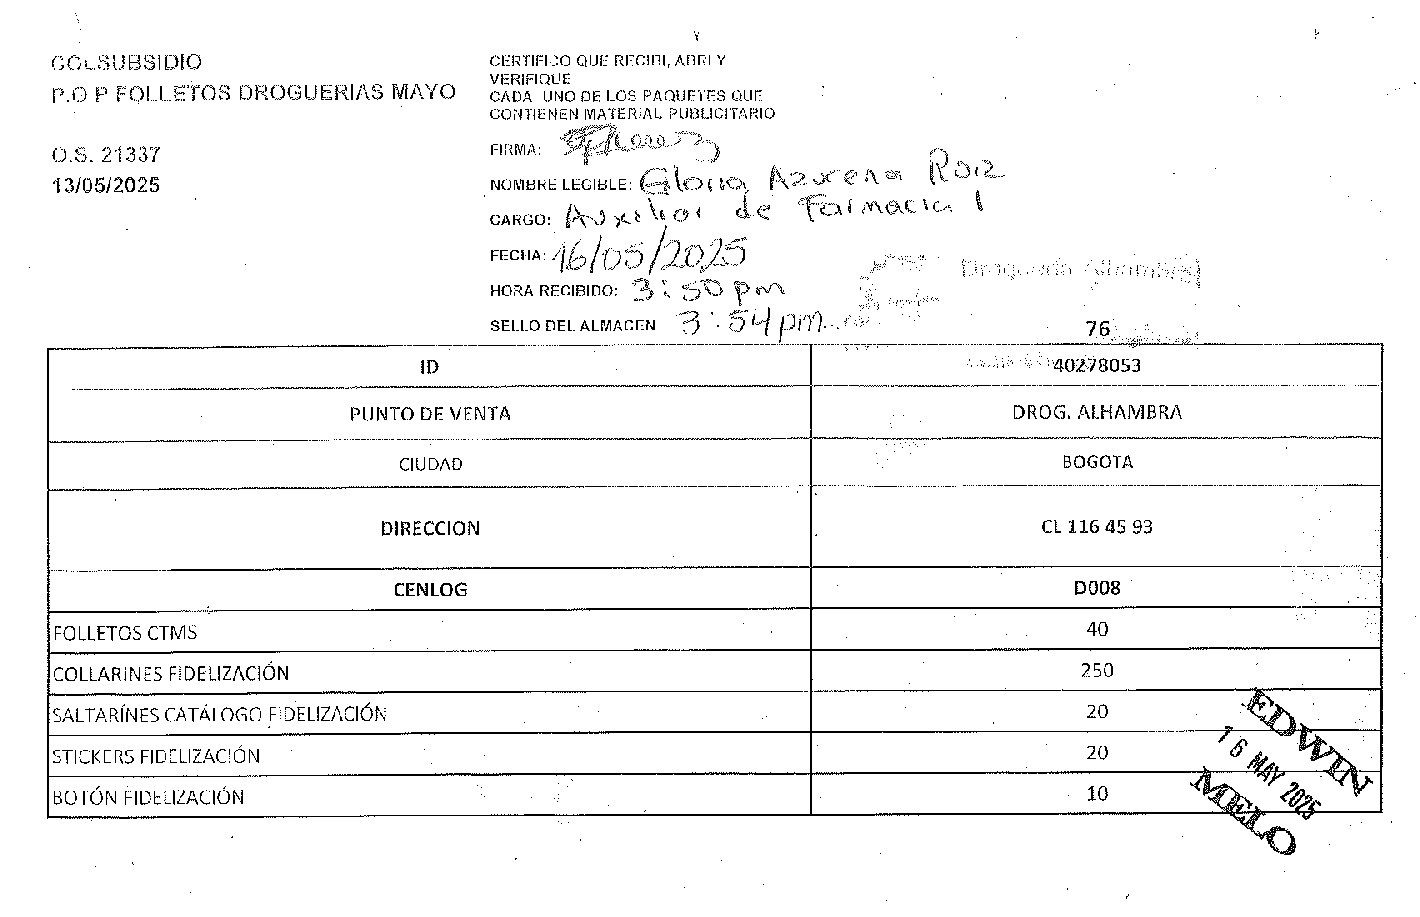 COLSUBSIDIO
P.O P FOLLETOS DROGUERIAS MAYO
O.S. 21337
13/05/2025
CERTIFICO QUE RECIBI, ABRI Y
VERIFIQUE
CADA UNO DE LOS PAQUETES QUE
CONTIENEN MATERIAL PUBLICITARIO
FIRMA:
NOMBRE LEGIBLE: Gloria Azucena Ruiz
CARGO: Auxiliar de Farmacia 1
FECHA: 16/05/2025
HORA RECIBIDO: 3:50 pm
SELLO DEL ALMACEN 3:54 pm
Droguería Alhambra
76
ID 40278053
PUNTO DE VENTA DROG. ALHAMBRA
CIUDAD BOGOTA
DIRECCION CL 116 45 93
CENLOG D008
FOLLETOS CTMS 40
COLLARINES FIDELIZACIÓN 250
SALTARÍNES CATÁLOGO FIDELIZACIÓN 20
STICKERS FIDELIZACIÓN 20
BOTÓN FIDELIZACIÓN 10
EDWIN
16 MAY 2025
MELO